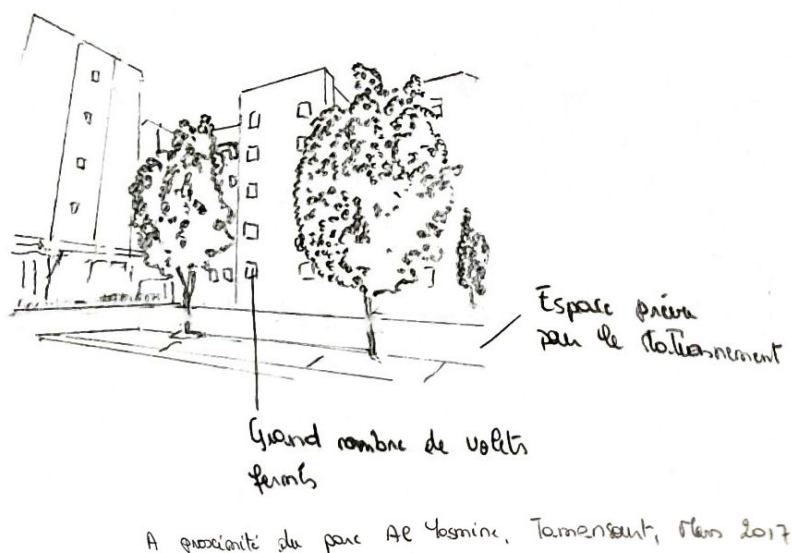 Espace prévu
pour le stationnement
Grand nombre de volets
fermés
A proximité du parc Al Yasmine, Tamansourt, Mars 2017